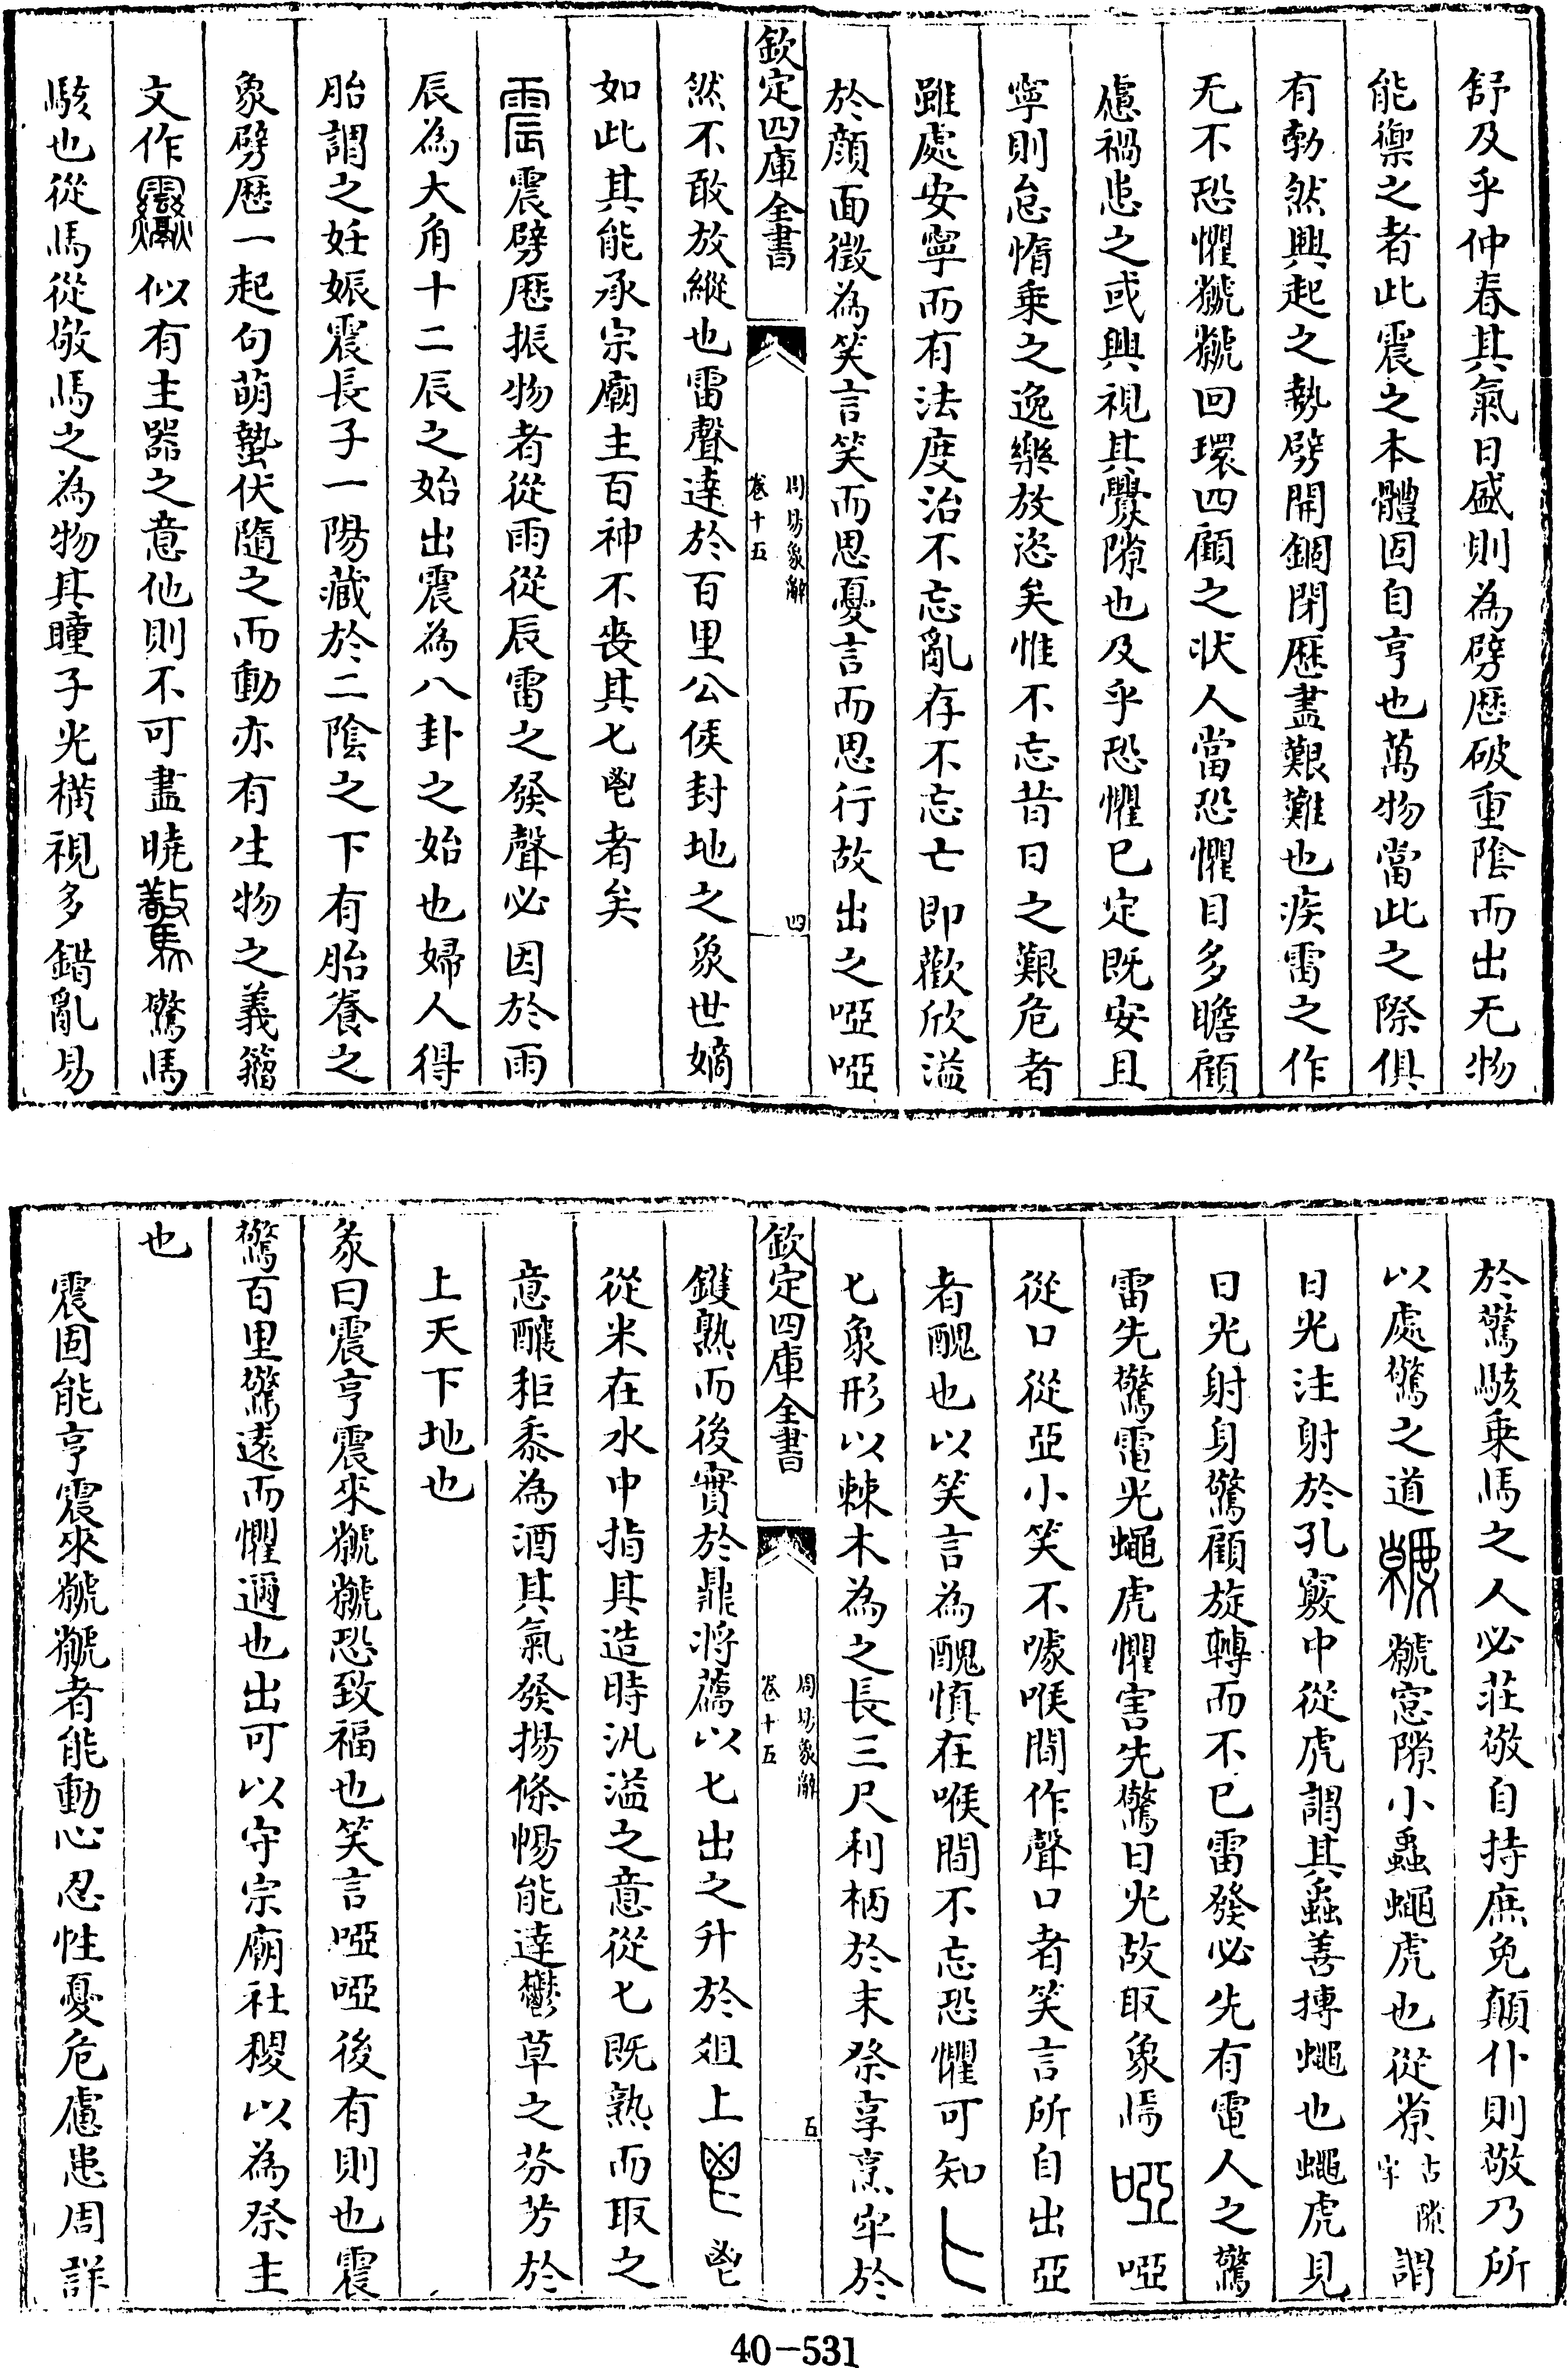 舒及乎仲春其氣日盛則為劈歷破重陰而出无物
能禦之者此震之本體固自亨也萬物當此之際俱
有勃然興起之勢劈開錮閉歷盡艱難也疾雷之作
无不恐懼虩虩回環四顧之状人當恐懼目多瞻顧
慮禍患之或興視其釁隙也及乎恐懼已定既安且
寧則怠惰乗之逸樂放恣矣惟不忘昔日之艱危者
雖處安寧而有法度治不忘亂存不忘亡即歡欣溢
於顔面徵為笑言笑而思憂言而思行故出之啞啞
欽定四庫全書
周易象辭
卷十五
四
然不敢放縱也雷聲達於百里公侯封地之象世嫡
如此其能承宗廟主百神不喪其匕鬯者矣
震震劈歷振物者從雨從辰雷之發聲必因於雨
辰為大角十二辰之始出震為八卦之始也婦人得
胎謂之妊娠震長子一陽藏於二陰之下有胎養之
象劈歷一起句萌蟄伏隨之而動亦有生物之義籀
文作似有主器之意他則不可盡曉驚驚馬
駭也從馬從敬馬之為物其瞳子光橫視多錯亂易
於驚駭乗馬之人必莊敬自持庶免顛仆則敬乃所
以處驚之道虩虩窓隙小蟲蠅虎也從𡭴古隙字謂
日光注射於孔竅中從虎謂其蟲善摶蠅也蠅虎見
日光射身驚顧旋轉而不已雷發必先有電人之驚
雷先驚電光蠅虎懼害先驚日光故取象焉啞啞
從口從亞小笑不㗇喉間作聲口者笑言所自出亞
者醜也以笑言為醜慎在喉間不忘恐懼可知匕
匕象形以棘木為之長三尺利柄於末祭享烹牢於
欽定四庫全書
周易象辭
卷十五
五
鑊熟而後實於鼎將薦以匕出之升於俎上鬯鬯
從米在水中指其造時汎溢之意從匕既熟而取之
意釀秬黍為酒其氣發揚條暢能達鬱草之芬芳於
上天下地也
彖曰震亨震來虩虩恐致福也笑言啞啞後有則也震
驚百里驚遠而懼邇也出可以守宗廟社稷以為祭主
也
震固能亨震來虩虩者能動心忍性憂危慮患周詳
40-531